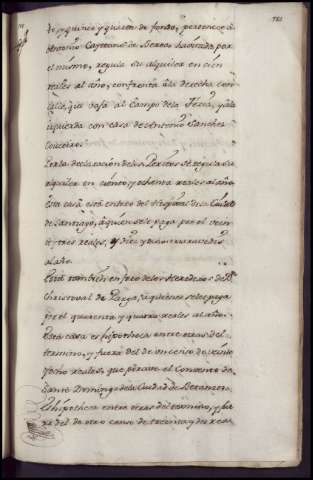 te, y quince y quarta de fondo, pertenece à
Antonio Cayetano de Berea havitada por
el mismo, regula su alquiler en cien
reales al año, confronta à la derecha con
calle, que vaja al Campo de la Feria, y a la
izquierda con casa de Antonio Sanchez
Couceiro =
Por la declaracion de los Peritos se regula su
alquiler en ciento, y ochenta reales al año
Esta casa està en foro del Hospital de la Ciudad
de Santiago, à quien se le paga por el veinte
y tres reales, y diez y ocho maravedis
al año.
Està tambien en foro de los herederos de Dn
Christoval de Parga, à quienes se les paga
por el quarenta y quatro reales al año.
Esta casa es hipotheca entre otras del
termino, y fuera del de un censo de veinte
y ocho reales, que percive el Convento de
Santo Domingo de la Ciudad de Betanzos.
Es hipotheca entre otras del termino, y fue
ra del de otro censo de treinta y dos rea